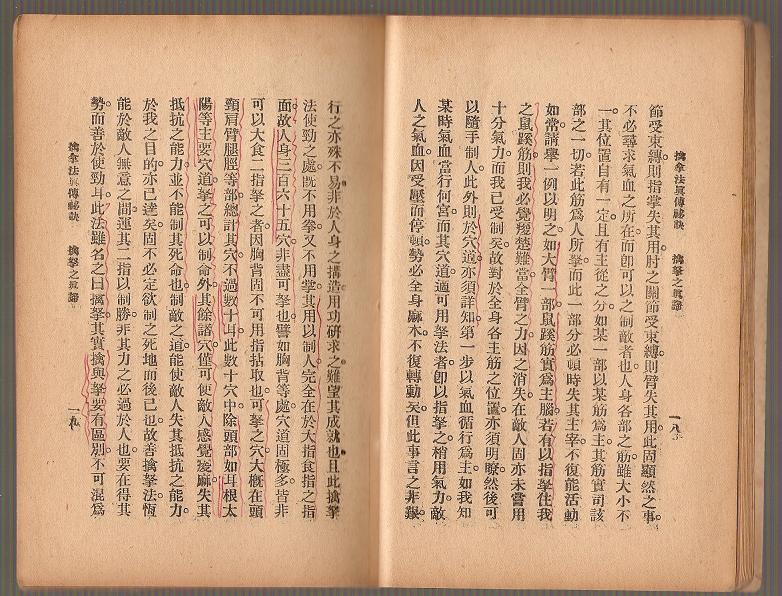 擒拿法眞傳秘訣　擒拏之眞諦
一八
節受束縛。則指掌失其用。肘之關節受束縛。則臂失其用。此固顯然之事。
不必尋求氣血之所在。而卽可以之制敵者也。人身各部之筋。雖大小不
一。其位置自有一定。且有主從之分。如某一部以某筋爲主。其筋實司該
部之一切。若此筋爲人所拏。而此一部分必頓時失其主宰。不復能活動
如常。請舉一例以明之。如大臂一部。鼠蹊筋實爲主腦。若有以指拏住我
之鼠蹊筋。則我必覺痠楚難當。全臂之力。因之消失。在敵人固亦未嘗用
十分氣力。而我已受制矣。故對於全身各主筋之位置。亦須明瞭。然後可
以隨手制人。此外則於穴道。亦須詳知。第一步以氣血循行爲主。如我知
某時氣血當行何宮。而其穴道適可用拏法者。卽以指拏之。稍用氣力。敵
人之氣血。因受壓而停頓。勢必全身麻木。不復轉動矣。但此事言之非艱。
行之亦殊不易。非於人身之構造。用功硏求之。難望其成就也。且此擒拏
法使勁之處。旣不用拳。又不用掌。其用以制人。完全在於大指食指之指
面。故人身三百六十五穴。非盡可拏也。譬如胸背等處。穴道固極多。皆非
可以大食二指拏之者。因胸背固不可用指拈取也。可拏之穴。大槪在頭
頸肩臂腿脛等部。總計其穴。不過數十耳。此數十穴中。除頭部如耳根太
陽等主要穴道。拏之可以制命外。其餘諸穴。僅可使敵人感覺痠麻。失其
抵抗之能力。並不能制其死命也。制敵之道。能使敵人失其抵抗之能力。
於我之目的。亦已達矣。固不必定欲制之死地而後已也。故善擒拏法。恆
能於敵人無意之間。運其二指以制勝。非其力之必過於人也。要在得其
勢而善於使勁耳。此法雖名之曰擒拏。其實擒與拏要有區別。不可混爲
擒拿法眞傳秘訣　擒拏之眞諦
一九